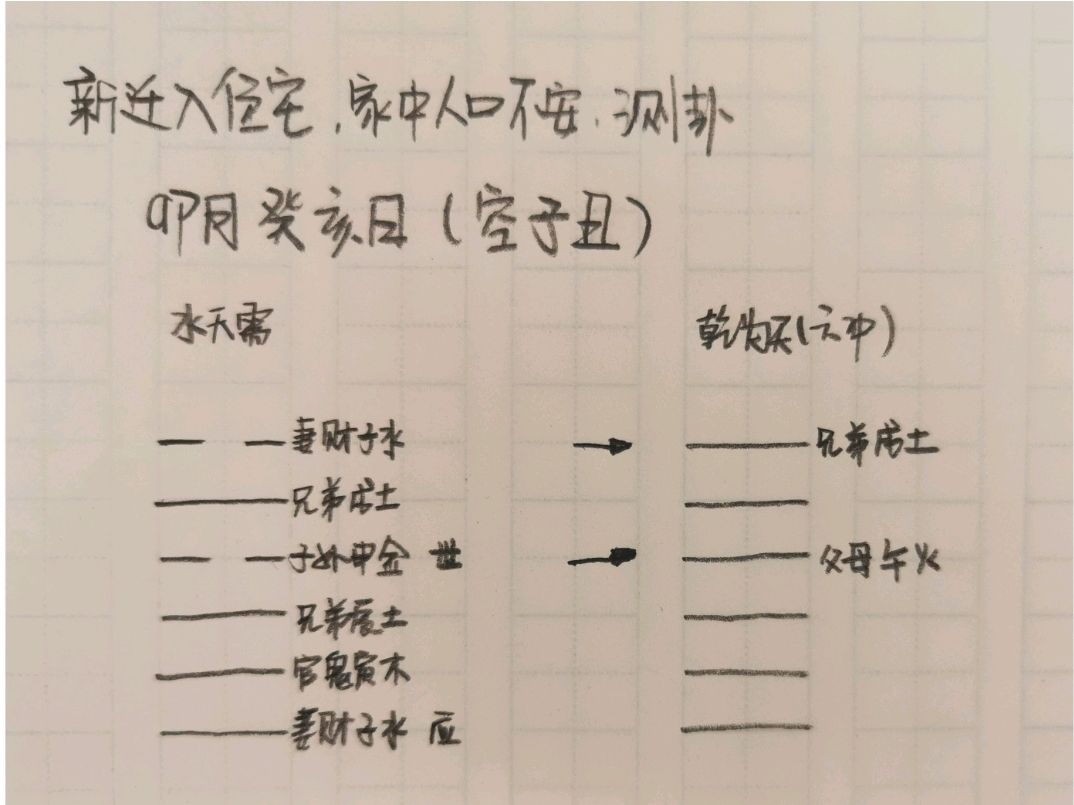 新迁入住宅,家中人口不安,测卦
卯月癸亥日(空子丑)
水天需 乾为天(六冲)
妻财子水 兄弟戌土
兄弟戌土
子孙申金 世 父母午火
兄弟辰土
官鬼寅木
妻财子水 应